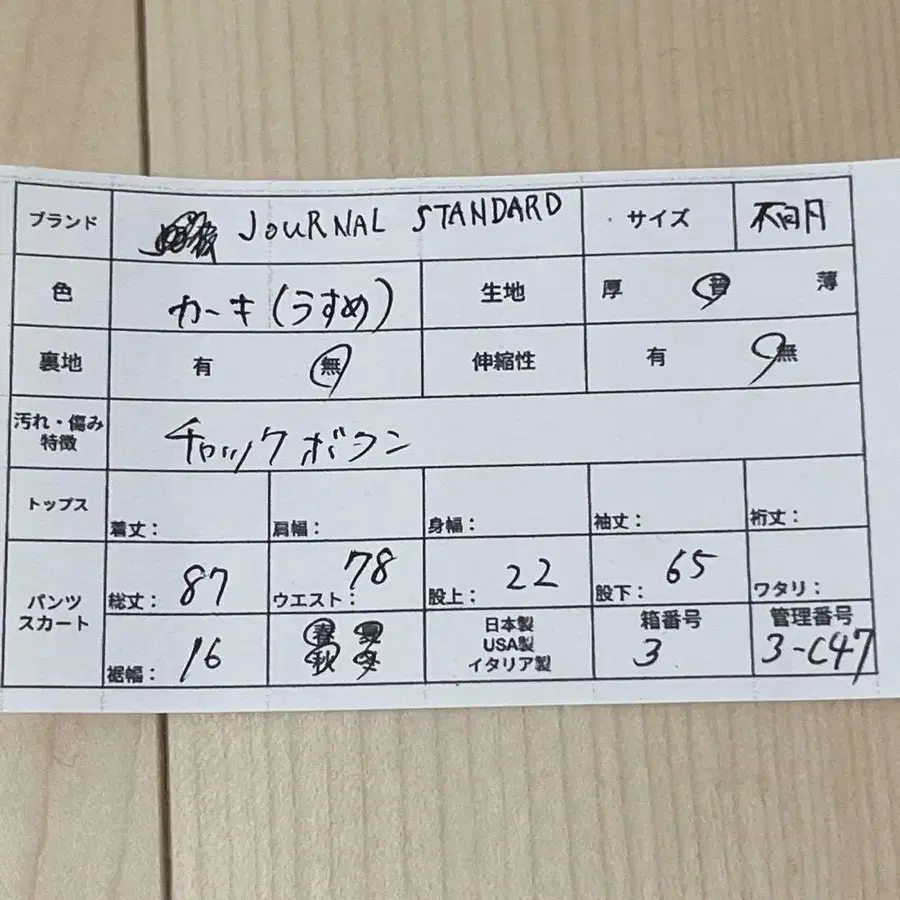 ブランド JOURNAL STANDARD サイズ 不明
色 カーキ(うすめ) 生地 厚 普 薄
裏地 有 無 伸縮性 有 無
汚れ・傷み
特徴 チャックボタン
トップス 着丈: 肩幅: 身幅: 袖丈: 裄丈:
パンツ
スカート 総丈: 87 ウエスト: 78 股上: 22 股下: 65 ワタリ:
裾幅: 16 春 夏
秋 冬
日本製
USA製
イタリア製
箱番号
3
管理番号
3-C47